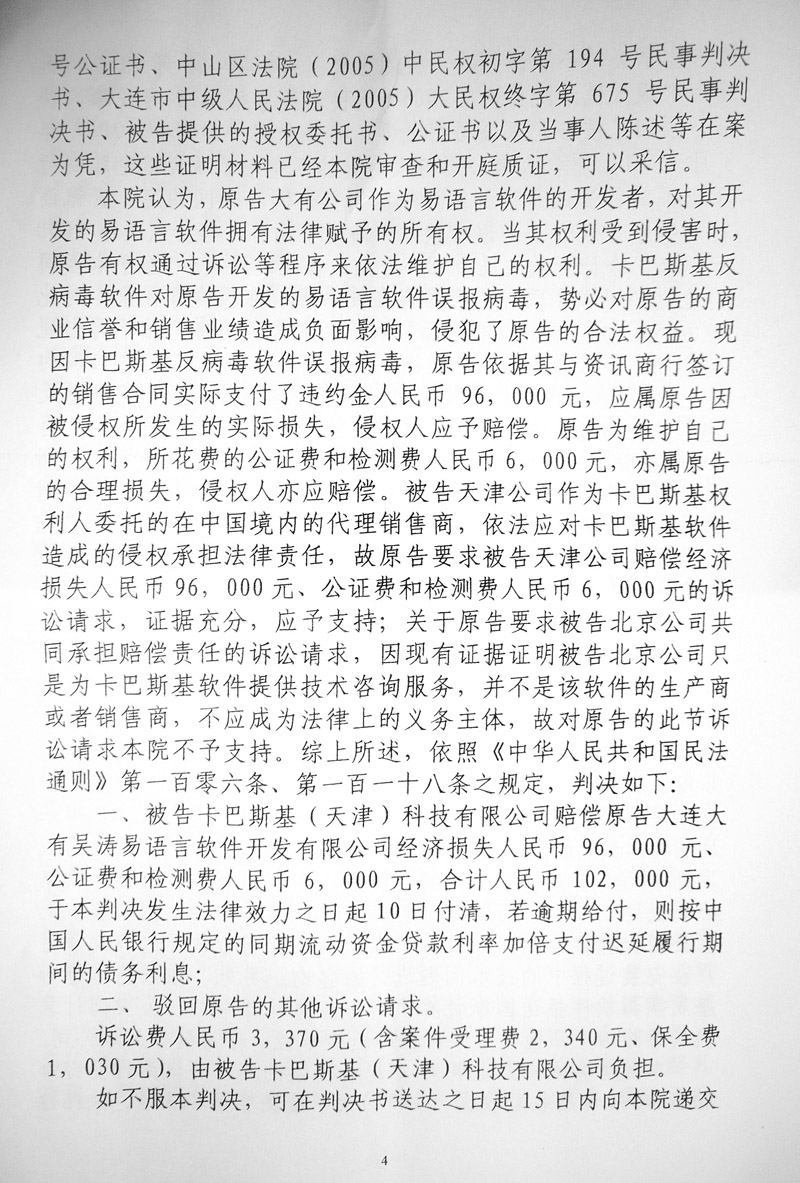 号公证书、中山区法院（2005）中民权初字第 194 号民事判决
书、大连市中级人民法院（2005）大民权终字第 675 号民事判
决书、被告提供的授权委托书、公证书以及当事人陈述等在案
为凭，这些证明材料已经本院审查和开庭质证，可以采信。
本院认为，原告大有公司作为易语言软件的开发者，对其开
发的易语言软件拥有法律赋予的所有权。当其权利受到侵害时，
原告有权通过诉讼等程序来依法维护自己的权利。卡巴斯基反
病毒软件对原告开发的易语言软件误报病毒，势必对原告的商
业信誉和销售业绩造成负面影响，侵犯了原告的合法权益。现
因卡巴斯基反病毒软件误报病毒，原告依据其与资讯商行签订
的销售合同实际支付了违约金人民币 96，000 元，应属原告因
被侵权所发生的实际损失，侵权人应予赔偿。原告为维护自己
的权利，所花费的公证费和检测费人民币 6，000 元，亦属原告
的合理损失，侵权人亦应赔偿。被告天津公司作为卡巴斯基权
利人委托的在中国境内的代理销售商，依法应对卡巴斯基软件
造成的侵权承担法律责任，故原告要求被告天津公司赔偿经济
损失人民币 96，000 元、公证费和检测费人民币 6，000 元的诉
讼请求，证据充分，应予支持；关于原告要求被告北京公司共
同承担赔偿责任的诉讼请求，因现有证据证明被告北京公司只
是为卡巴斯基软件提供技术咨询服务，并不是该软件的生产商
或者销售商，不应成为法律上的义务主体，故对原告的此节诉
讼请求本院不予支持。综上所述，依照《中华人民共和国民法
通则》第一百零六条、第一百一十八条之规定，判决如下：
一、被告卡巴斯基（天津）科技有限公司赔偿原告大连大
有吴涛易语言软件开发有限公司经济损失人民币 96，000 元、
公证费和检测费人民币 6，000 元，合计人民币 102，000 元，
于本判决发生法律效力之日起 10 日付清，若逾期给付，则按中
国人民银行规定的同期流动资金贷款利率加倍支付迟延履行期
间的债务利息；
二、 驳回原告的其他诉讼请求。
诉讼费人民币 3，370 元（含案件受理费 2，340 元、保全费
1，030 元），由被告卡巴斯基（天津）科技有限公司负担。
如不服本判决，可在判决书送达之日起 15 日内向本院递交
4